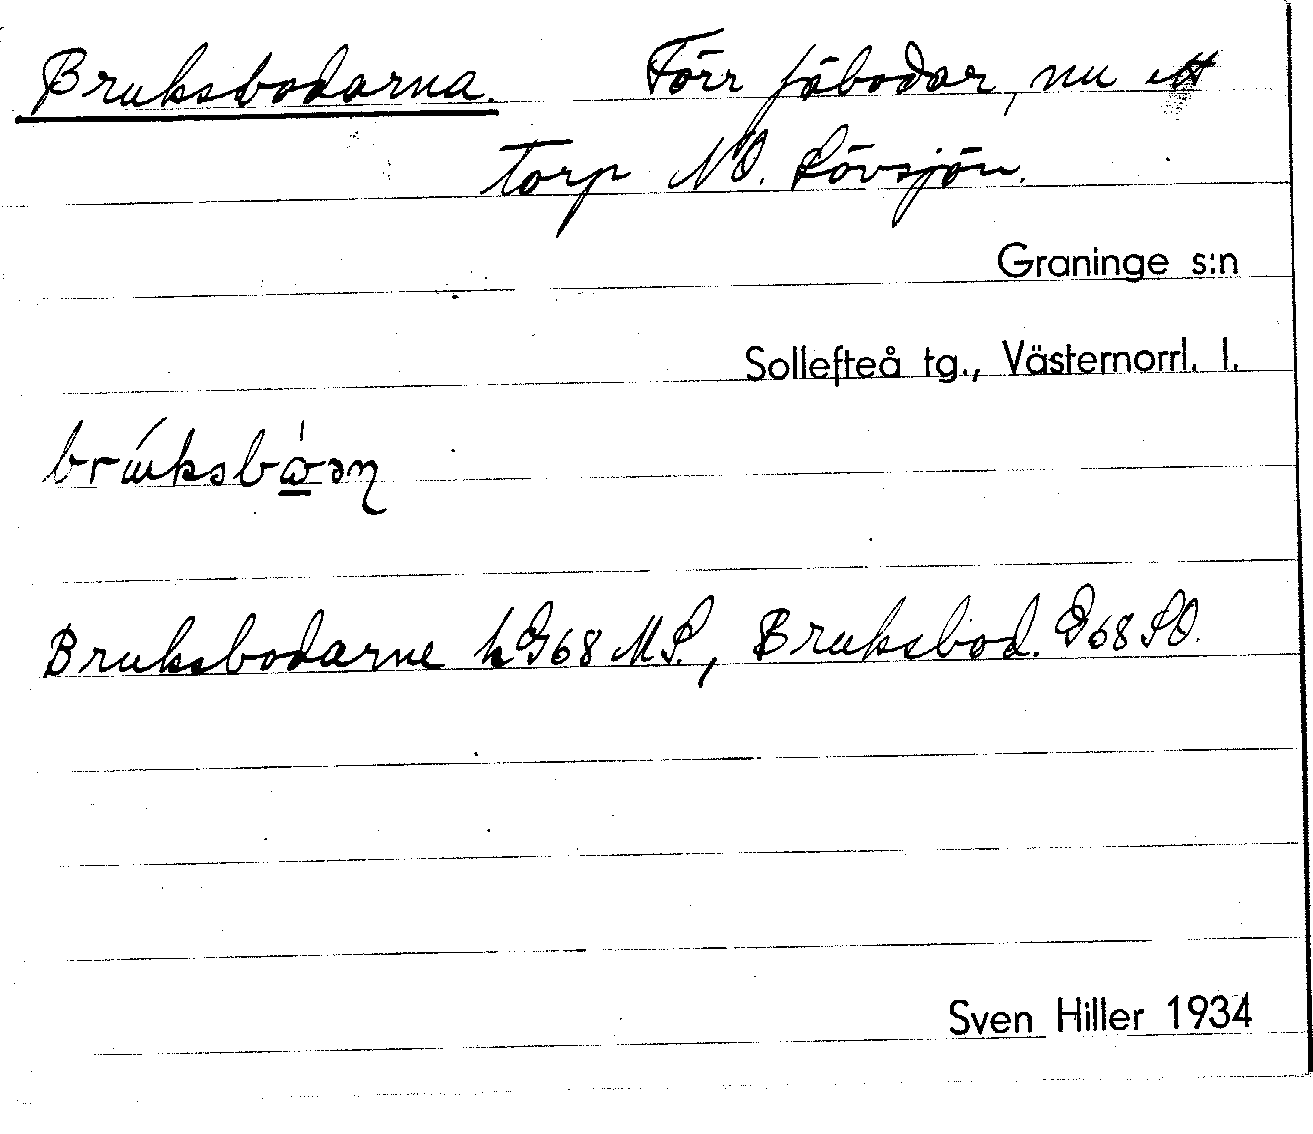 Bruksbodarna. Förr fäbodar, nu ett
torp NO. Lövsjön.
Graninge s:n
Sollefteå tg., Västernorrl. l.
Bruksbodarne h G68 MS., Bruksbod. G68 SO.
Sven Hiller 1934